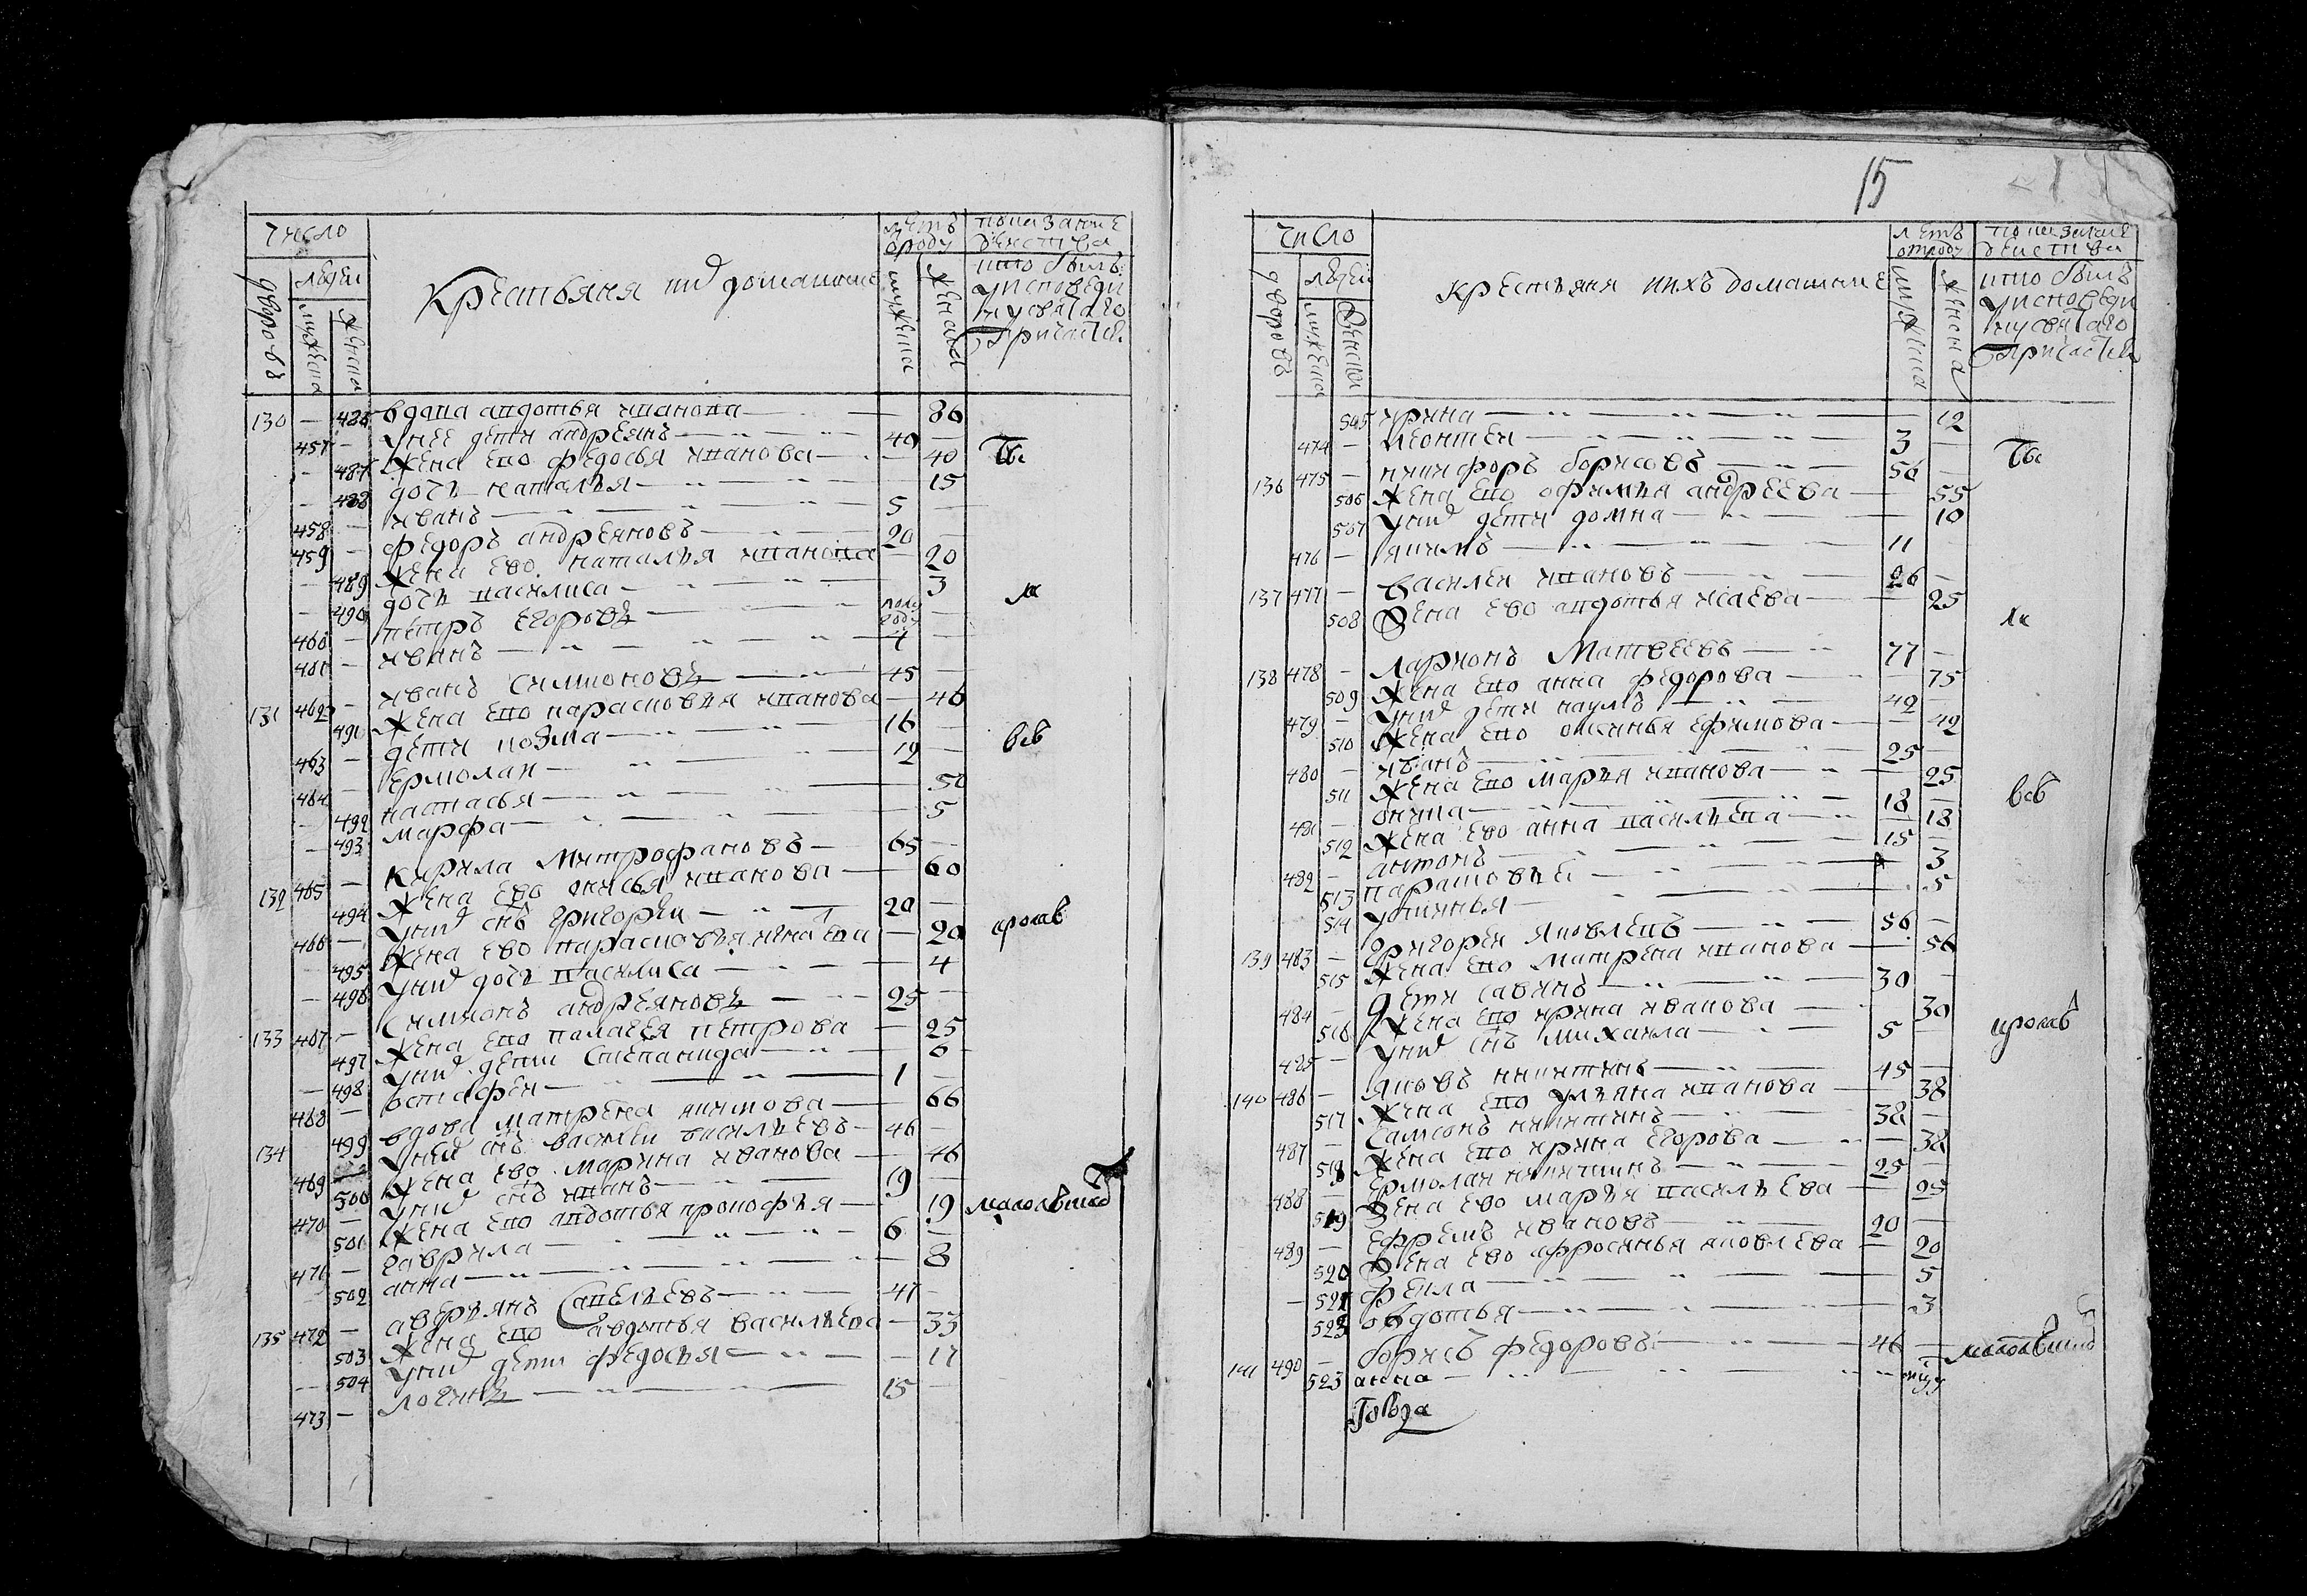 число
крестьяня иих домашние
летъ отроду
показание действа
дворовъ
людеи
мужеска
женска
мужеска
женска
кто былъ
уисповеди
исвятаго
причастия
130 — 486 вдова авдотья иванова — 86
457 — унее дети андреянъ — 40 —
— 487 жена ево федосья иванова — 40
— 488 дочь наталья — 15
458 — иванъ — 5 —
459 — федоръ андреяновъ — 20 —
— 489 жена ево наталья иванова — 20
— 490 дочь василиса — 3
460 — петръ егоровъ — полу году —
461 — иванъ — 4 —
131 462 — иванъ симионовъ — 45 —
491 жена ево парасковья иванова — 46
463 — дети козма — 16
464 — ермолаи — 12 —
— 492 настасья — 50
— 493 марфа — 5
132 465 — кирила митрофановъ — 65 —
494 жена ево анисья иванова — 60
466 — унихъ снъ григореи — 20 —
495 жена ево парасковья — 20
— 496 унихъ дочь василиса — 4
133 467 — симионъ андреяновъ — 25 —
497 жена ево палагея петрова — 25
— 498 унихъ дети степанида — 6
468 — остафеи — 1 —
134 499 вдова матрена якимова — 66
469 — унеи снъ василеи васильевъ — 46 —
500 жена ево марина иванова — 46
470 — унихъ снъ иванъ — 19 —
501 жена ево авдотья прокофья — 19
471 — гаврила — 6 —
502 анна — 8
135 472 — аверьянъ савельевъ — 41 —
503 жена ево авдотья васильева — 33
— 504 унихъ дети федосья — 17
473 — логинъ — 15 —
вев
15
число
крестьяня иихъ домашние
летъ отроду
показание действа
дворовъ
людеи
мужеска
женска
мужеска
женска
кто былъ
уисповеди
исвятаго
причастия
505 ирина — 12
474 — леонтеи — 3 —
136 475 — никифоръ борисовъ — 56 —
506 жена ево офимья андреева — 55
507 унихъ дети домна — 10
476 — якимъ — 11
137 477 — василеи ивановъ — 26 —
508 жена ево авдотья исаева — 25
138 478 — ларионъ матвеевъ — 77 —
509 жена ево анна федорова — 75
479 — унихъ дети наумъ — 42 —
510 жена ево оксинья ефимова — 42
480 — иванъ — 25 —
511 жена ево марья иванова — 25
481 — оника — 18 —
512 жена ево анна васильева — 18
482 — антонъ — 15 —
513 парасковья — 3
514 устинья — 5
139 483 — григореи яковлевъ — 56 —
515 жена ево матрена иванова — 56
484 — дети савинъ — 30 —
516 жена ево ирина иванова — 30
485 — унихъ снъ михаила — 5
140 486 — яковъ никитинъ — 45 —
517 жена ево ульяна иванова — 38
487 — самсонъ никитинъ — 38 —
518 жена ево ирина егорова — 38
488 — ермолаи никитинъ — 25 —
519 жена ево марья васильева — 25
489 — ефремъ ивановъ — 20 —
520 жена ево афросинья яковлева — 20
— 521 фекла — 5
522 овдотья — 3
141 490 — борисъ федоровъ — 46 —
523 анна
вев